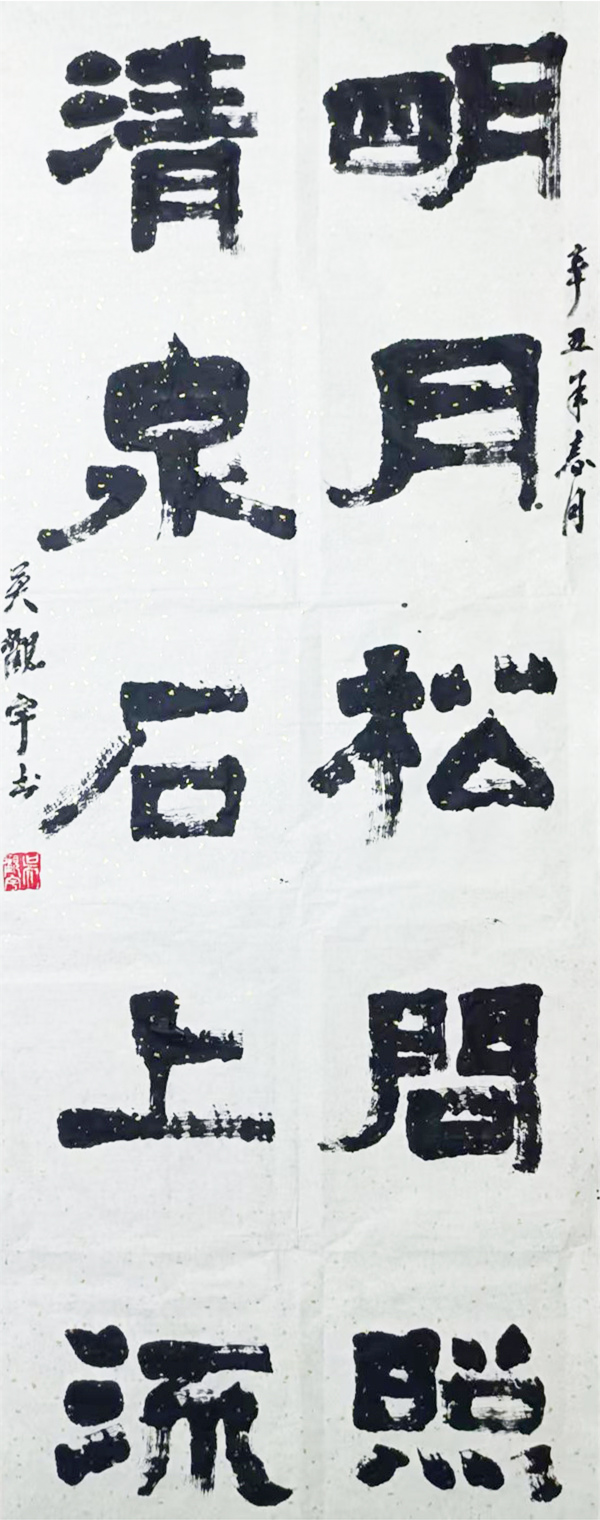 辛丑年春月
明月松間照
清泉石上流
吴觀宇书